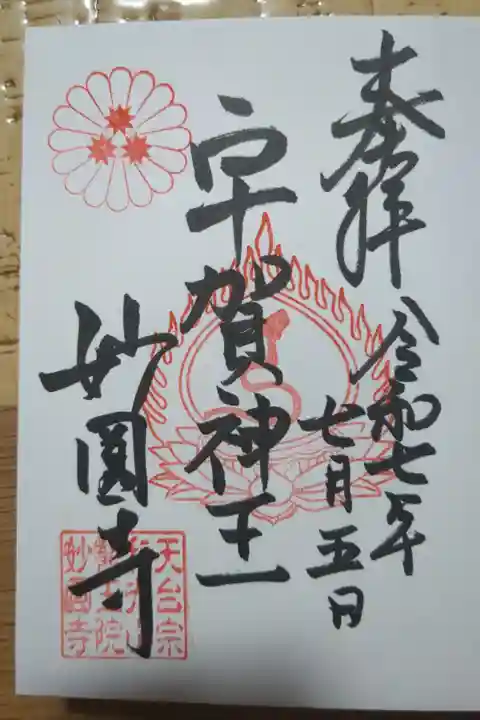 奉拝
令和七年
七月五日
宇賀神王
妙圓寺
天台宗
妙圓寺